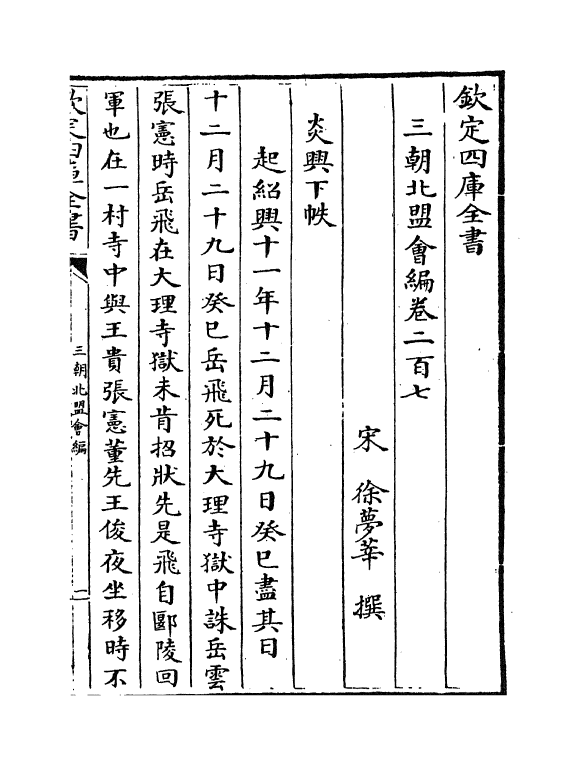 欽定四庫全書
三朝北盟會編卷二百七
宋 徐夢莘 撰
炎興下帙
起紹興十一年十二月二十九日癸巳盡其日
十二月二十九日癸巳岳飛死於大理寺獄中誅岳雲
張憲時岳飛在大理寺獄未肯招狀先是飛自郾陵回
軍也在一村寺中與王貴張憲董先王俊夜坐移時不
欽定四庫全書
三朝北盟會編